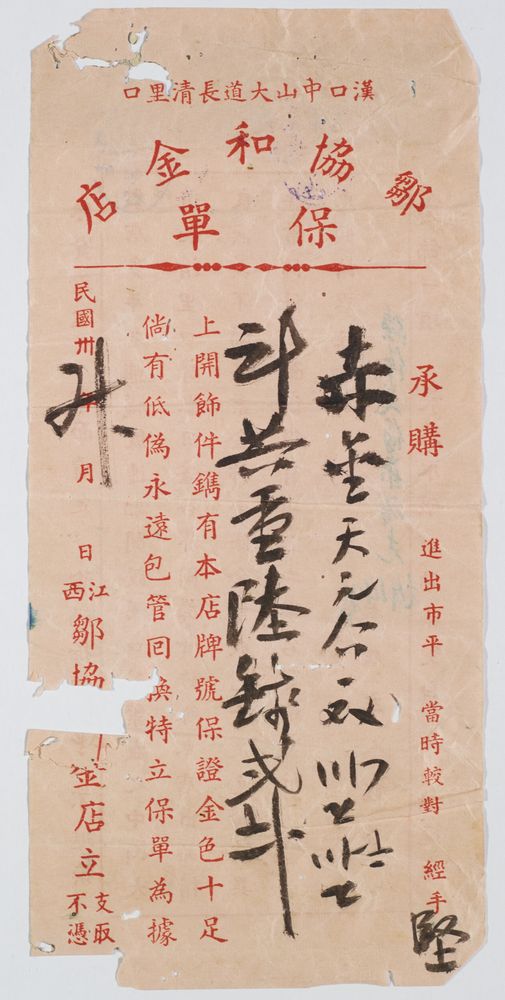 漢口中山大道長清里口
鄒協和金店
保單
承購
進出市平 當時較對 經手
堅
赤金天元
共重陸錢弍
上開飾件鐫有本店牌號保證金色十足
倘有低偽永遠包管回換特立保單為據
民國卅 年 月 日
江西鄒協 金店立
支取不憑